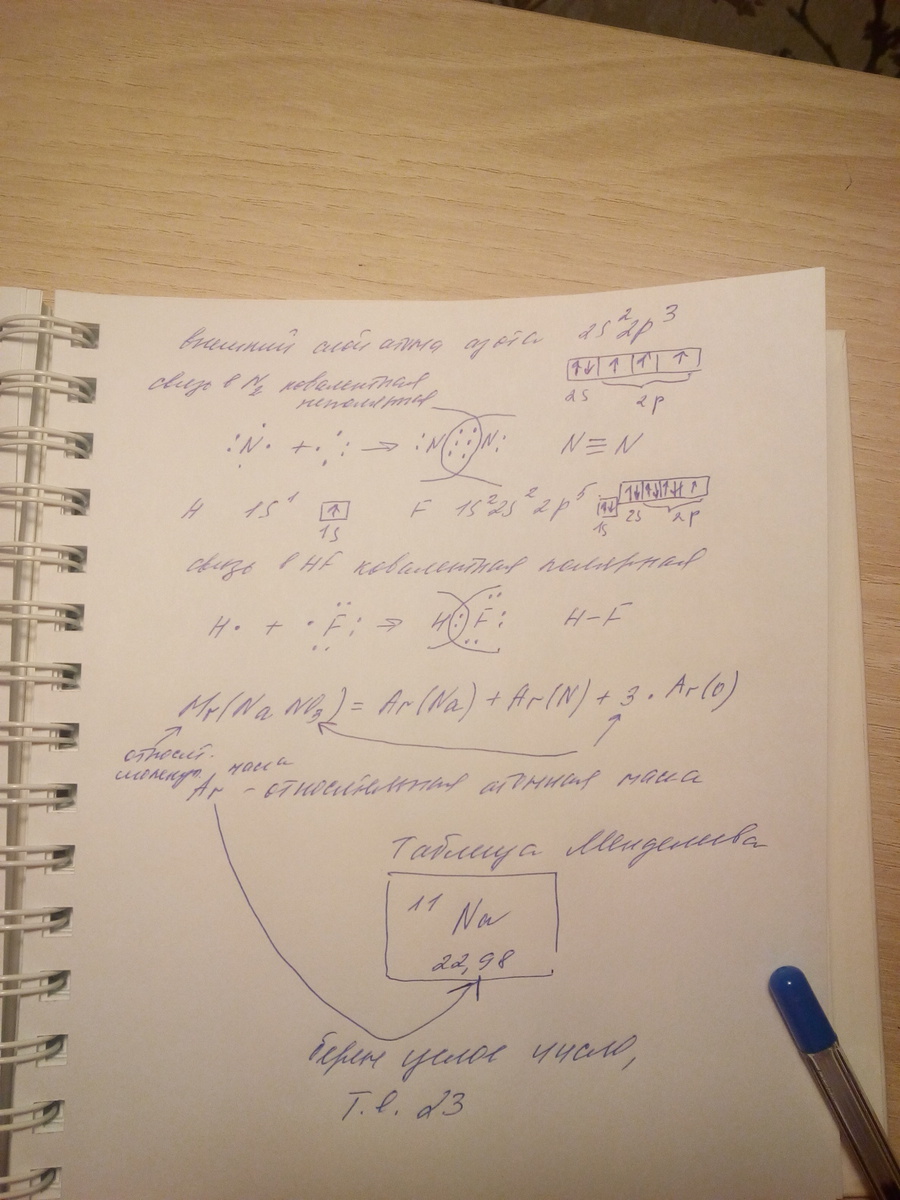 внешний слой атома азота 2s²2p³
↑↓ ↑ ↑ ↑
2s 2p
связь в N₂ ковалентная
неполярная
:N· + ·: → :N::: N: N≡N
H 1s¹ ↑ F 1s²2s²2p⁵ ↑↓ ↑↓ ↑↓ ↑↓ ↑
1s 1s 2s 2p
связь в HF ковалентная полярная
H· + ·F: → H:F: H–F
Mr(NaNO₃) = Ar(Na) + Ar(N) + 3·Ar(O)
относит.
молекул. масса
Ar - относительная атомная масса
Таблица Менделеева
11
Na
22,98
берем целое число,
т.е. 23